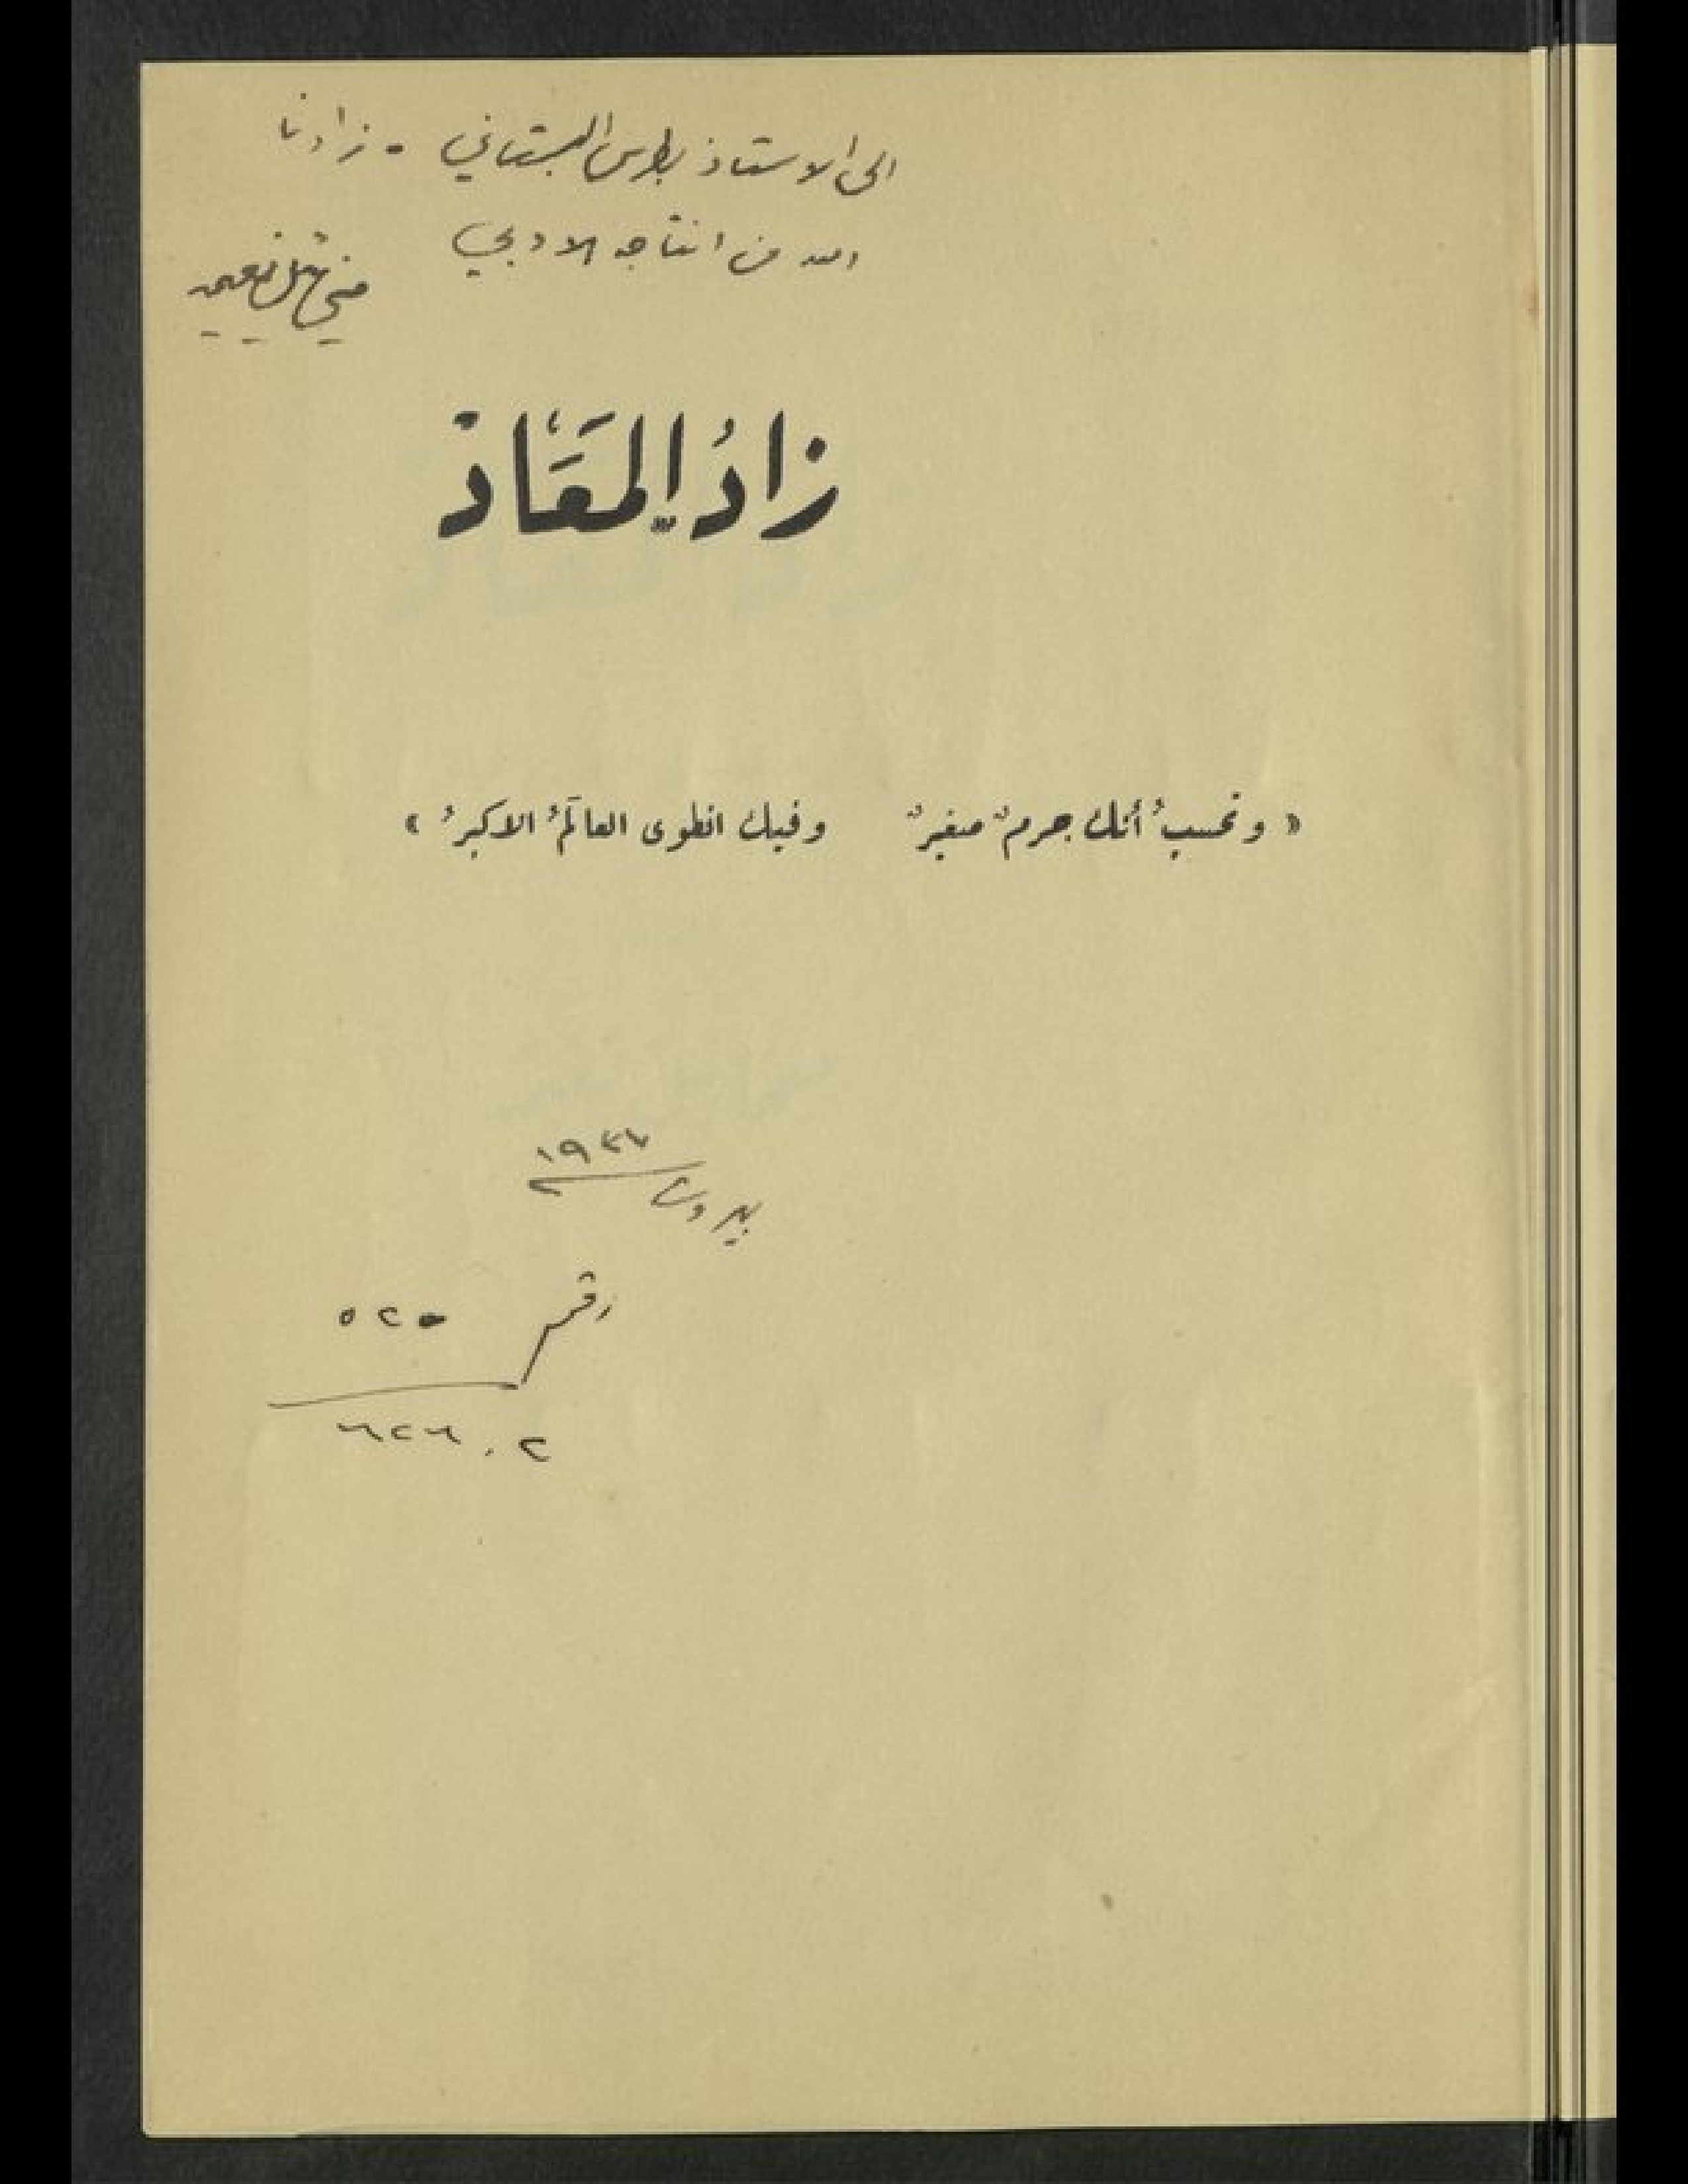 الى الاستاذ بطرس البستاني - زادنا
الله من انتاجه الادبي
ميخائيل نعيمه
زادُ المَعَاد
« وتحسبُ أنك جرمٌ صغيرٌ وفيك انطوى العالَمُ الاكبرُ »
١٩٣٧
بيروت
رقم ٥٢٥